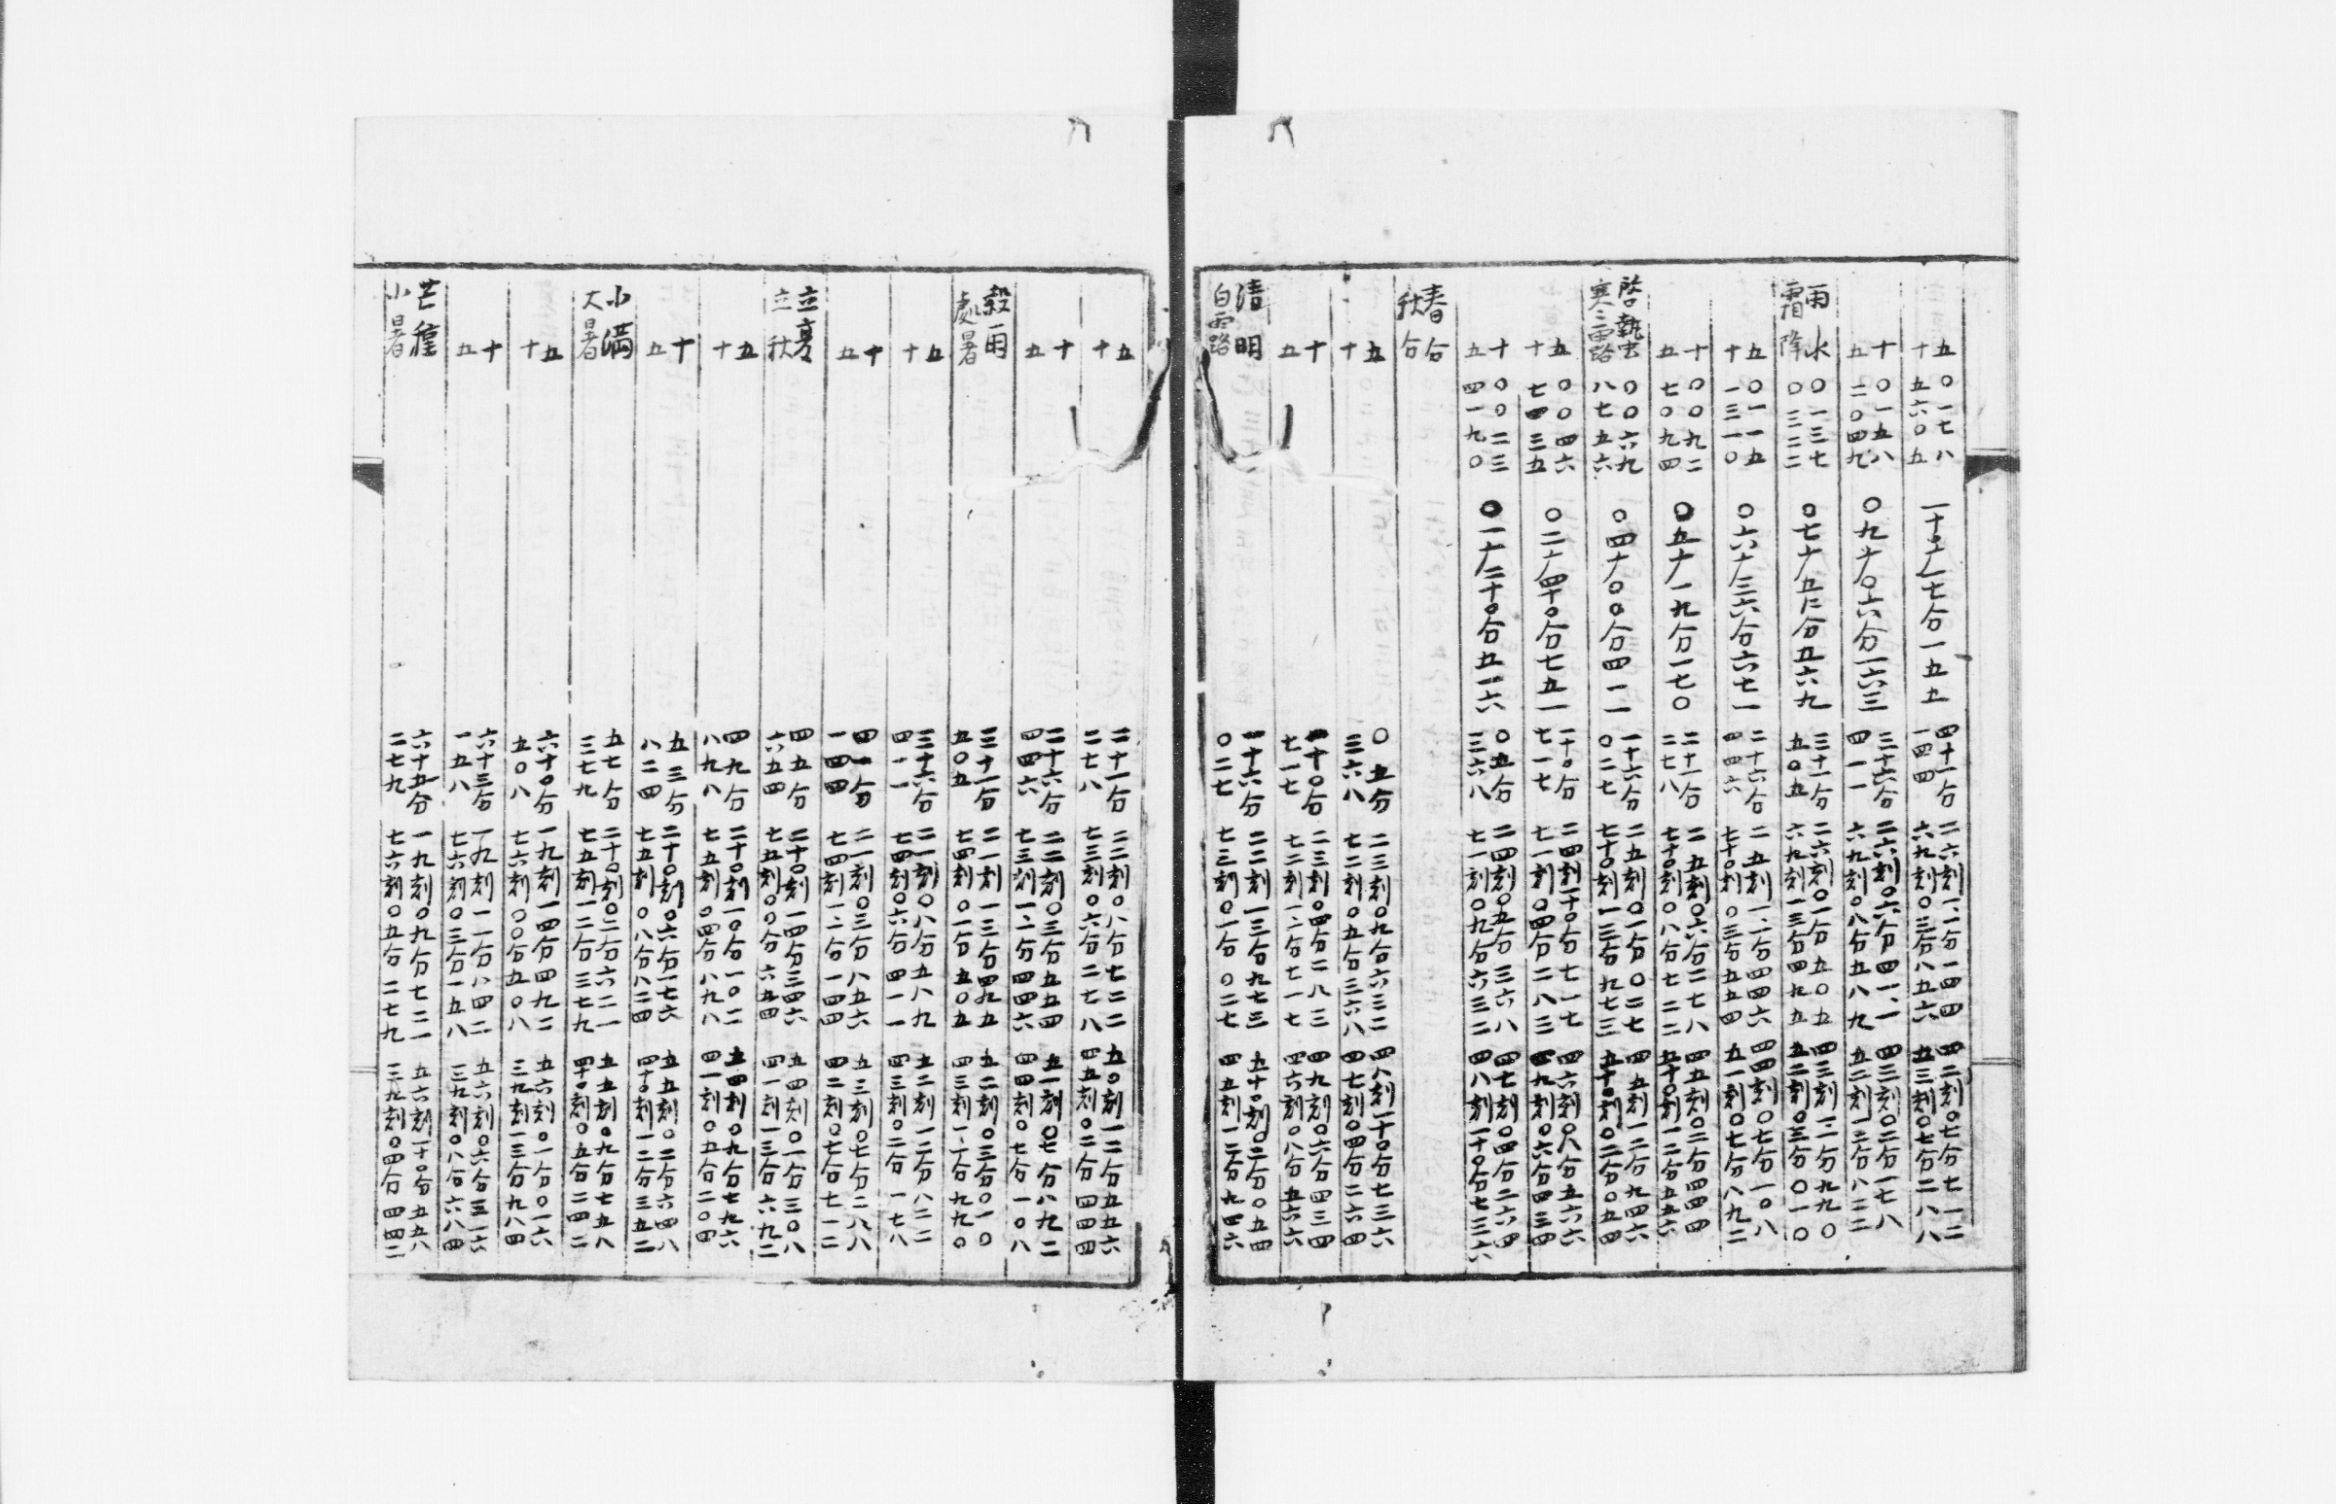 五〇一七八 一十〇广七分一五五 四十一分 二六刻一一分一四四 四二刻〇七分七一二
十五六〇五 一四四 六九刻〇三分八五六 五三刻〇七分二八八
十〇一五八 〇九广〇六分一六三 三十六分 二六刻〇六分四一一 四三刻〇二分一七八
五二〇四九 四一一 六九刻〇八分五八九 五二刻一二分八二二
雨水〇一三七 〇七广五二分五六九 三十一分 二六刻〇一分五〇五 四三刻一一分九九〇
霜降〇三二二 五〇五 六九刻一三分四九五 五二刻〇三分〇一〇
五〇一一五 〇六广三六分六七一 二十六分 二五刻一一分四四六 四四刻〇七分一〇八
十一三一〇 四四六 七十〇刻〇三分五五四 五一刻〇七分八九二
十〇〇九二 〇五广一九分一七〇 二十一分 二五刻〇六分二七八 四五刻〇二分四四四
五七〇九四 二七八 七十〇刻〇八分七二二 五十〇刻一二分五五六
啓蟄〇〇六九 〇四广〇〇分四一一 一十六分 二五刻〇一分〇二七 四五刻一二分九四六
寒露八七五六 〇二七 七十〇刻一三分九七三 五十〇刻〇二分〇五四
五〇〇四六 〇二广四十〇分七五一 一十〇分 二四刻一十〇分七一七 四六刻〇八分五六六
十七四三五 七一七 七一刻〇四分二八三 四九刻〇六分四三四
十〇〇二三 〇一广二十〇分五一六 〇五分 二四刻〇五分三六八 四七刻〇四分二六四
五四一九〇 三六八 七一刻〇九分六三二 四八刻一十〇分七三六
春分
秋分
五 〇五分 二三刻〇九分六三二 四八刻一十〇分七三六
十 三六八 七二刻〇五分三六八 四七刻〇四分二六四
十 一十〇分 二三刻〇四分二八三 四九刻〇六分四三四
五 七一七 七二刻一一分七一七 四六刻〇八分五六六
清明 一十六分 二二刻一三分九七三 五十〇刻〇二分〇五四
白露 〇二七 七三刻〇一分〇二七 四五刻一二分九四六
五 二十一分 二二刻〇八分七二二 五〇刻一二分五五六
十 二七八 七三刻〇六分二七八 四五刻〇二分四四四
十 二十六分 二二刻〇三分五五四 五一刻〇七分八九二
五 四四六 七三刻一一分四四六 四四刻〇七分一〇八
穀雨 三十一分 二一刻一三分四九五 五二刻〇三分〇一〇
處暑 五〇五 七四刻〇一分五〇五 四三刻一一分九九〇
五 三十六分 二一刻〇八分五八九 五二刻一二分八二二
十 四一一 七四刻〇六分四一一 四三刻〇二分一七八
十 四一分 二一刻〇三分八五六 五三刻〇七分二八八
五 一四四 七四刻一一分一四四 四二刻〇七分七一二
立夏 四五分 二十〇刻一四分三四六 五四刻〇一分三〇八
立秋 六五四 七五刻〇〇分六五四 四一刻一三分六九二
五 四九分 二十〇刻一〇分一〇二 五四刻〇九分七九六
十 八九八 七五刻〇四分八九八 四一刻〇五分二〇四
十 五三分 二十〇刻〇六分一七六 五五刻〇二分六四八
五 八二四 七五刻〇八分八二四 四十〇刻一二分三五二
小滿 五七分 二十〇刻〇二分六二一 五五刻〇九分七五八
大暑 三七九 七五刻一二分三七九 四十〇刻〇五分二四二
五 六十〇分 一九刻一四分四九二 五六刻〇一分〇一六
十 五〇八 七六刻〇〇分五〇八 三九刻一三分九八四
十 六十三分 一九刻一一分八四二 五六刻〇六分三一六
五 一五八 七六刻〇三分一五八 三九刻〇八分六八四
芒種 六十五分 一九刻〇九分七二一 五六刻一十〇分五五八
小暑 二七九 七六刻〇五分二七九 三九刻〇四分四四二